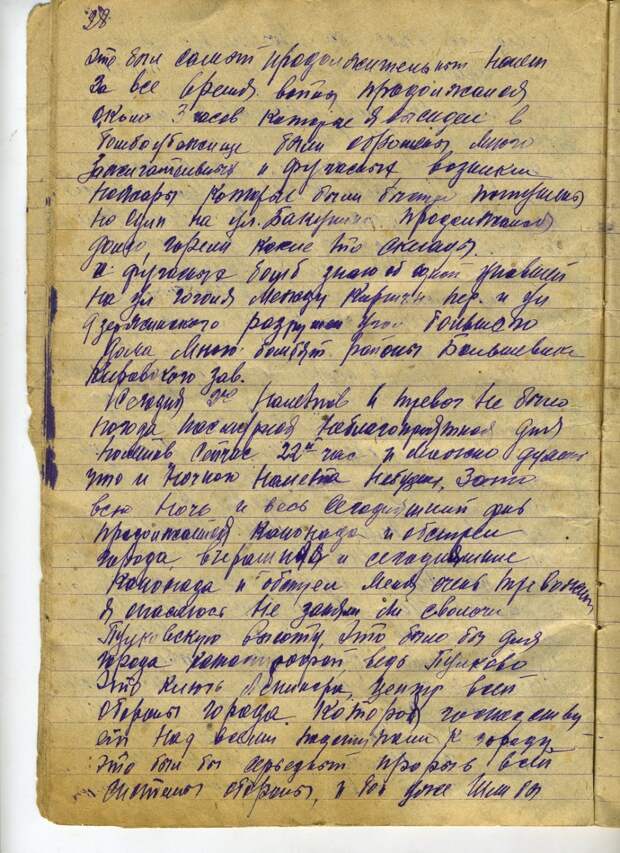 28
Это был самый продолжительный налет
За все время войны продолжался
около 3 часов которые я высидел в
бомбоубежище были сброшены много
Зажигательных и фугасных возникли
пожары которые были быстро потушены
но один на ул. Бакунина продолжался
долго, горели какие то склады.
и фугасных бомб знаю об одной упавшей
на ул Гоголя между Кирпичн пер. и ул
Дзержинского разрушен угол большого
дома Много бомбят районы Большевика
Кировского зав.
Сегодня налетов и тревог не было
погода пасмурная неблагоприятная для
налетов сейчас 22 час и можно думать
что и ночного налета небудет, Зато
всю ночь и весь сегодняшний день
продолжается канонада и обстрел
города, вчерашняя и сегодняшние
Канонада и обстрел меня очень тревожит
я опасаюсь не заняли ли сволочи
Пулковскую высоту, это было бы для
города катастрофой ведь Пулково
это ключь Ленинграда, центр всей
обороны города. Которая господству
ет над всеми подступами к городу
это был бы серьезный прорыв всей
системы обороны, и вот даже